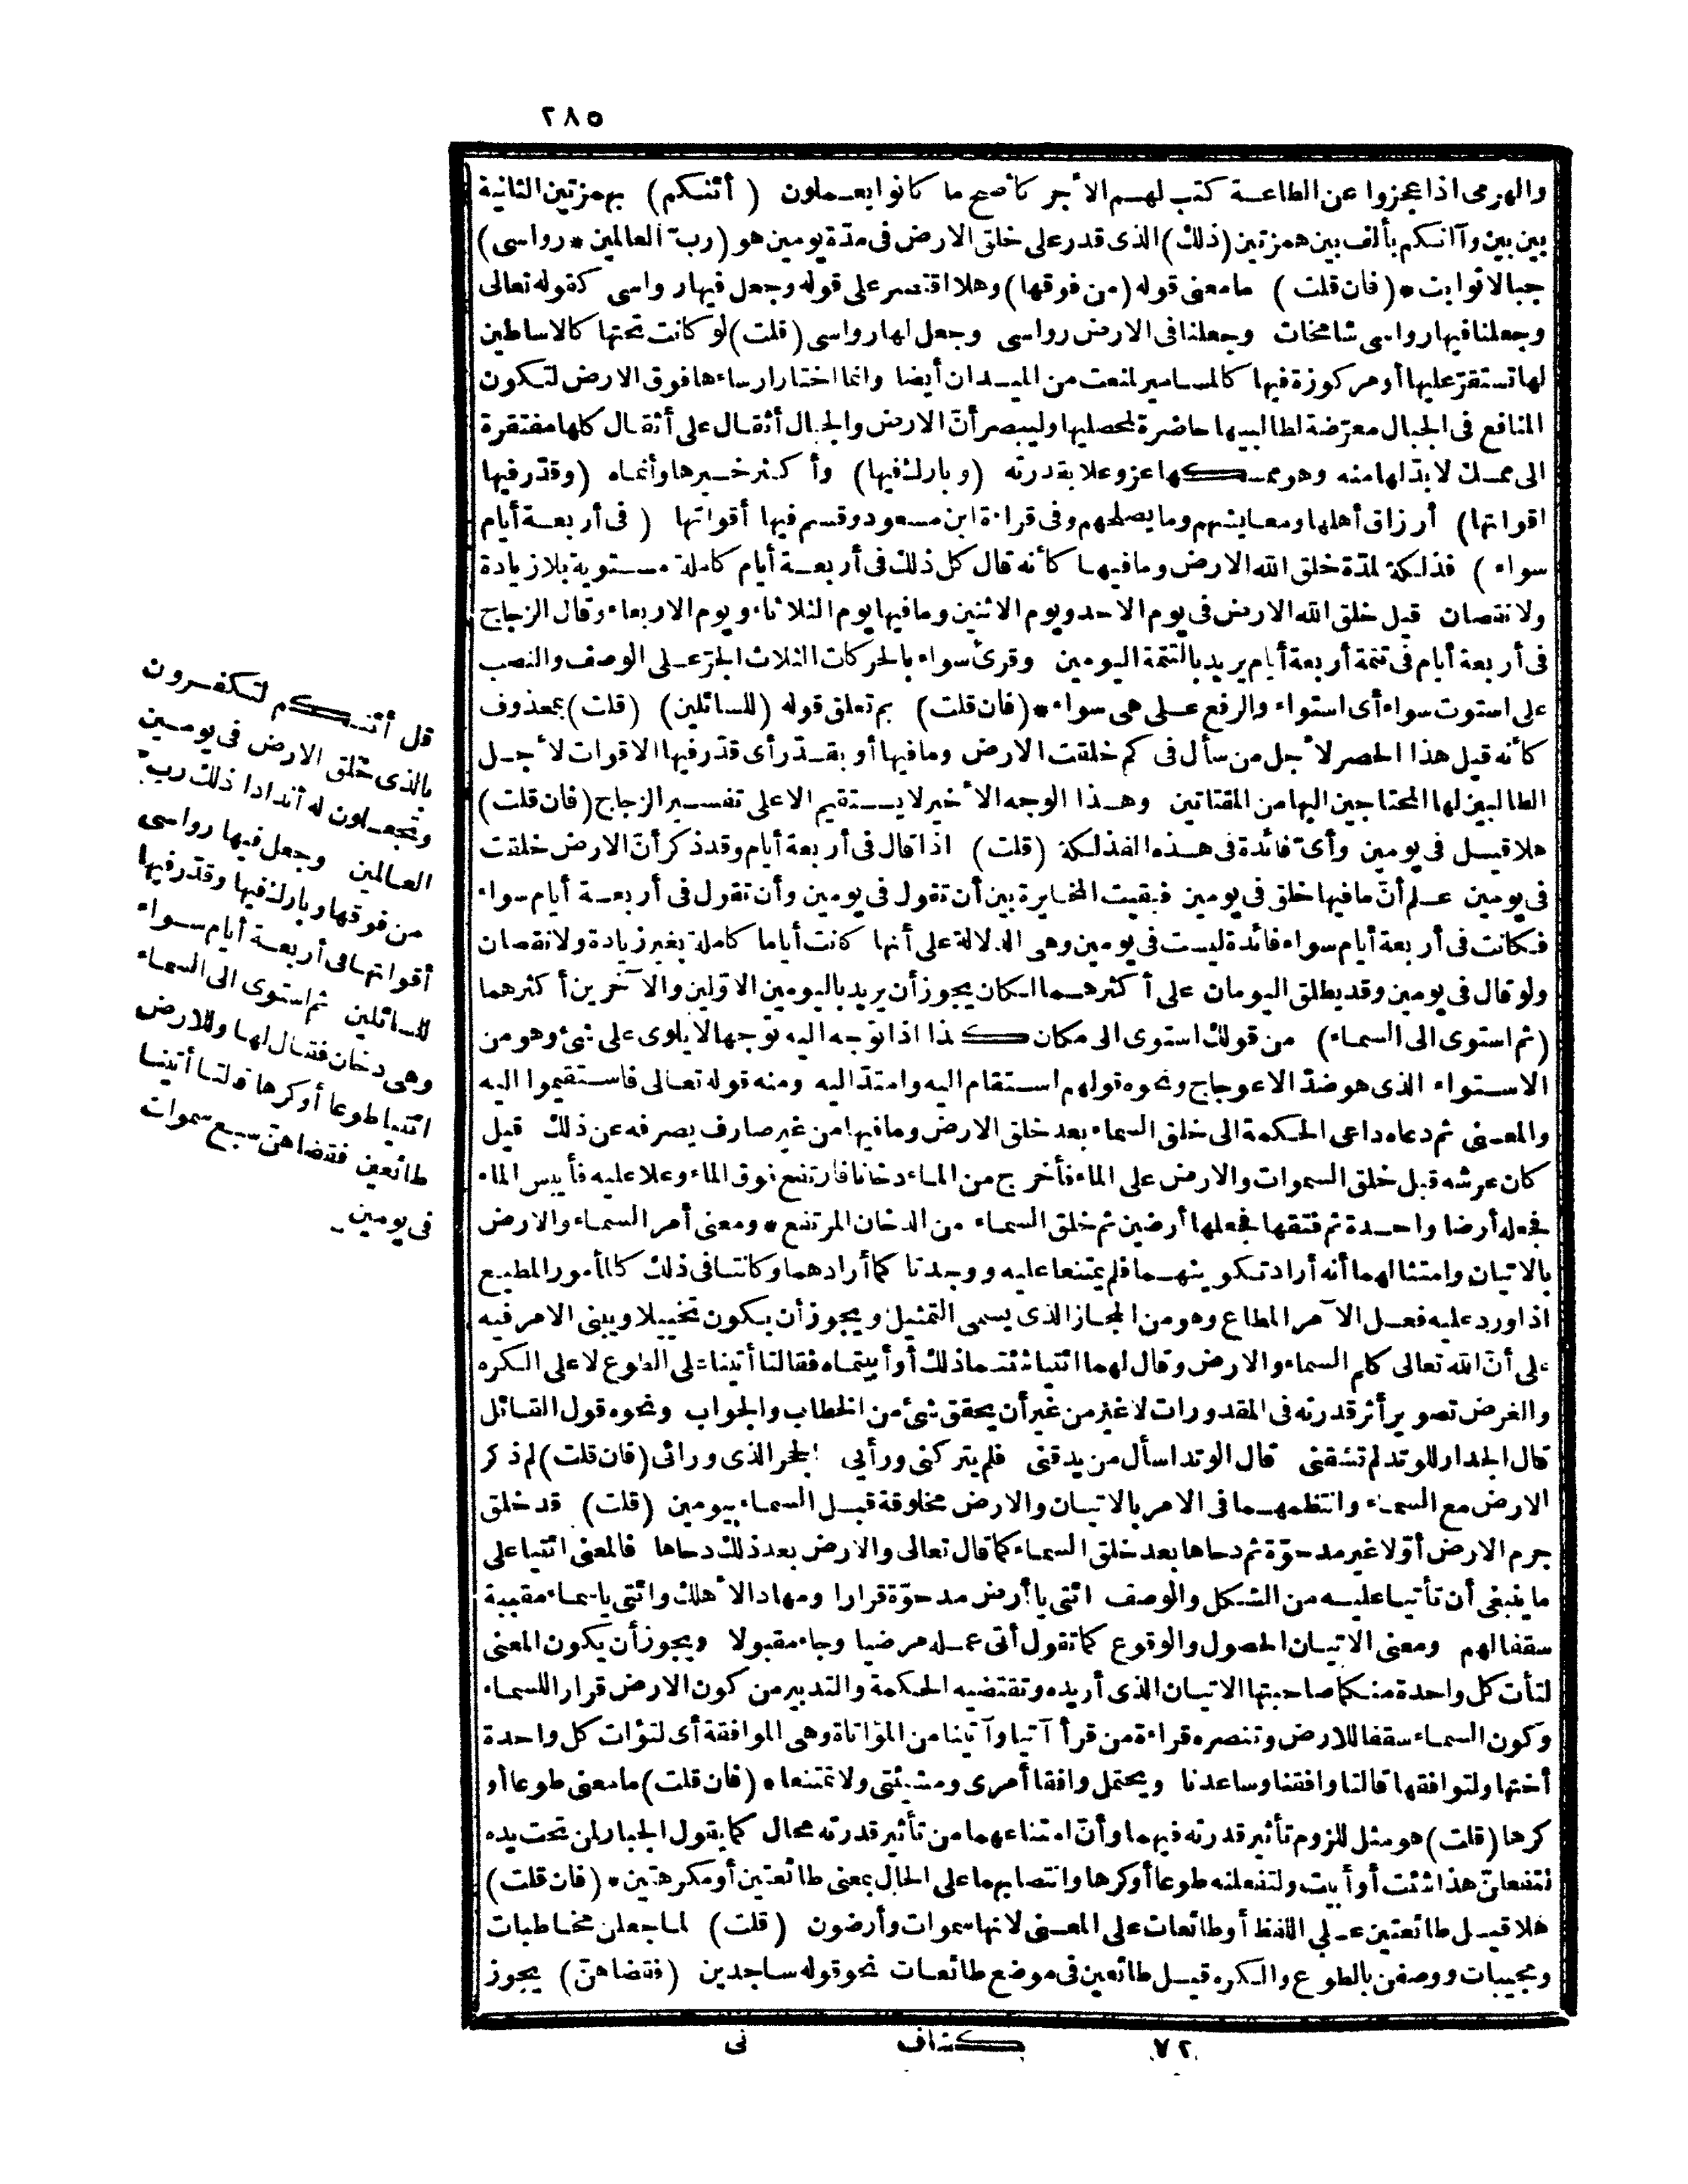 ٢٨٥
والهرمى اذا عجزوا عن الطاعة كتب لهم الأجر كأصح ما كانوا يعملون (أئنكم) بهمزتين الثانية
بين بين وآانكم بألف بين همزتين (ذلك) الذى قدر على خلق الارض فى مدّة يومين هو (ربّ العالمين * رواسى)
جبالا ثوابت * (فان قلت) ما معنى قوله (من فوقها) وهلا اقتصر على قوله وجعل فيها رواسى كقوله تعالى
وجعلنا فيها رواسى شامخات وجعلنا فى الارض رواسى وجعل لها رواسى (قلت) لو كانت تحتها كالاساطين
لها تستقرّ عليها أو مركوزة فيها كالمسامير لمنعت من الميدان أيضا وانما اختار ارساءها فوق الارض لتكون
المنافع فى الجبال معرّضة لطالبيها حاضرة لمحصليها وليبصر أنّ الارض والجبال أثقال على أثقال كلها مفتقرة
الى ممسك لا بدّ لها منه وهو ممسكها عز وعلا بقدرته (وبارك فيها) وأكثر خيرها وأنماه (وقدّر فيها
اقواتها) أرزاق أهلها ومعايشهم وما يصلحهم وفى قراءة ابن مسعود وقسم فيها أقواتها (فى أربعة أيام
سواء) فذلكة لمدّة خلق الله الارض وما فيها كأنه قال كل ذلك فى أربعة أيام كاملة مستوية بلا زيادة
ولا نقصان قيل خلق الله الارض فى يوم الاحد ويوم الاثنين وما فيها يوم الثلاثاء ويوم الاربعاء وقال الزجاج
فى أربعة أيام فى تتمة أربعة أيام يريد بالتتمة اليومين وقرئ سواء بالحركات الثلاث الجرّ على الوصف والنصب
على استوت سواء أى استواء والرفع على هى سواء * (فان قلت) بم تعلق قوله (للسائلين) (قلت) بمحذوف
كأنه قيل هذا الحصر لأجل من سأل فى كم خلقت الارض وما فيها أو بقدّر أى قدّر فيها الاقوات لأجل
الطالبين لها المحتاجين اليها من المقتاتين وهذا الوجه الأخير لا يستقيم الا على تفسير الزجاج (فان قلت)
هلا قيل فى يومين وأىّ فائدة فى هذه الفذلكة (قلت) اذا قال فى أربعة أيام وقد ذكر أنّ الارض خلقت
فى يومين علم أنّ ما فيها خلق فى يومين فبقيت المخايرة بين أن تقول فى يومين وأن تقول فى أربعة أيام سواء
فكانت فى أربعة أيام سواء فائدة ليست فى يومين وهى الدلالة على أنها كانت أياما كاملة بغير زيادة ولا نقصان
ولو قال فى يومين وقد يطلق اليومان على أكثرهما لكان يجوز أن يريد باليومين الاوّلين والآخرين أكثرهما
(ثم استوى الى السماء) من قولك استوى الى مكان كذا اذا توجه اليه توجها لا يلوى على شئ وهو من
الاستواء الذى هو ضدّ الاعوجاج ونحوه قولهم استقام اليه وامتدّ اليه ومنه قوله تعالى فاستقيموا اليه
والمعنى ثم دعاه داعى الحكمة الى خلق السماء بعد خلق الارض وما فيها من غير صارف يصرفه عن ذلك قيل
كان عرشه قبل خلق السموات والارض على الماء فأخرج من الماء دخانا فارتفع فوق الماء وعلا عليه فأيبس الماء
فجعله أرضا واحدة ثم فتقها فجعلها أرضين ثم خلق السماء من الدخان المرتفع * ومعنى أمر السماء والارض
بالاتيان وامتثالهما أنه أراد تكوينهما فلم يمتنعا عليه ووجدتا كما أرادهما وكانتا فى ذلك كالمأمور المطيع
اذا ورد عليه فعل الآمر المطاع وهو من المجاز الذى يسمى التمثيل ويجوز أن يكون تخييلا ويبنى الامر فيه
على أنّ الله تعالى كلم السماء والارض وقال لهما ائتيا شئتما ذلك أو أبيتماه فقالتا أتينا على الطوع لا على الكره
والغرض تصوير أثر قدرته فى المقدورات لا غير من غير أن يحقق شئ من الخطاب والجواب ونحوه قول القائل
قال الجدار للوتد لم تشقنى قال الوتد اسأل من يدقنى فلم يتركنى ورأيى الحجر الذى ورائى (فان قلت) لم ذكر
الارض مع السماء وانتظمهما فى الامر بالاتيان والارض مخلوقة قبل السماء بيومين (قلت) قد خلق
جرم الارض أوّلا غير مدحوّة ثم دحاها بعد خلق السماء كما قال تعالى والارض بعد ذلك دحاها فالمعنى ائتيا على
ما ينبغى أن تأتيا عليه من الشكل والوصف ائتى يا أرض مدحوّة قرارا ومهادا لأهلك وائتى يا سماء مقببة
سقفا لهم ومعنى الاتيان الحصول والوقوع كما تقول أتى عمله مرضيا وجاء مقبولا ويجوز أن يكون المعنى
لتأت كل واحدة منكما صاحبتها الاتيان الذى أريده وتقتضيه الحكمة والتدبير من كون الارض قرارا للسماء
وكون السماء سقفا للارض وتنصره قراءة من قرأ آتيا وآتينا من المؤاتاة وهى الموافقة أى لتؤات كل واحدة
أختها ولتوافقها قالتا وافقنا وساعدنا ويحتمل وافقا أمرى ومشيئتى ولا تمتنعا * (فان قلت) ما معنى طوعا أو
كرها (قلت) هو مثل للزوم تأثير قدرته فيهما وأنّ امتناعهما من تأثير قدرته محال كما يقول الجبار لمن تحت يده
لتفعلنّ هذا شئت أو أبيت ولتفعلنه طوعا أو كرها وانتصابهما على الحال بمعنى طائعتين أو مكرهتين * (فان قلت)
هلا قيل طائعتين على اللفظ أو طائعات على المعنى لانها سموات وأرضون (قلت) لما جعلن مخاطبات
ومجيبات ووصفن بالطوع والكره قيل طائعين فى موضع طائعات نحو قوله ساجدين (فقضاهنّ) يجوز
قل أئنكم لتكفرون
بالذى خلق الارض فى يومين
وتجعلون له أندادا ذلك ربّ
العالمين وجعل فيها رواسى
من فوقها وبارك فيها وقدّر فيها
أقواتها فى أربعة أيام سواء
للسائلين ثم استوى الى السماء
وهى دخان فقال لها وللارض
ائتيا طوعا أو كرها قالتا أتينا
طائعين فقضاهنّ سبع سموات
فى يومين
٧٢ كشاف نى